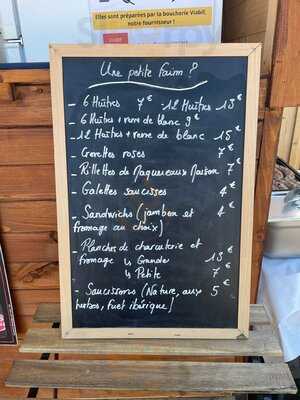 Elles sont préparées par la boucherie Viabil,
notre fournisseur !
Une petite faim ?
- 6 Huîtres 7€ - 12 Huîtres 13€
- 6 Huîtres + verre de blanc 9€
- 12 Huîtres + verre de blanc 15€
- Crevettes roses 7€
- Rillettes de Maquereaux Maison 7€
- Galettes saucisses 4€
- Sandwichs (jambon et 4€
fromage au choix)
Planches de charcuterie et
fromage ↳ Grande 13€
↳ Petite 7€
- Saucissons (Nature, aux 5€
herbes, fuet ibérique)